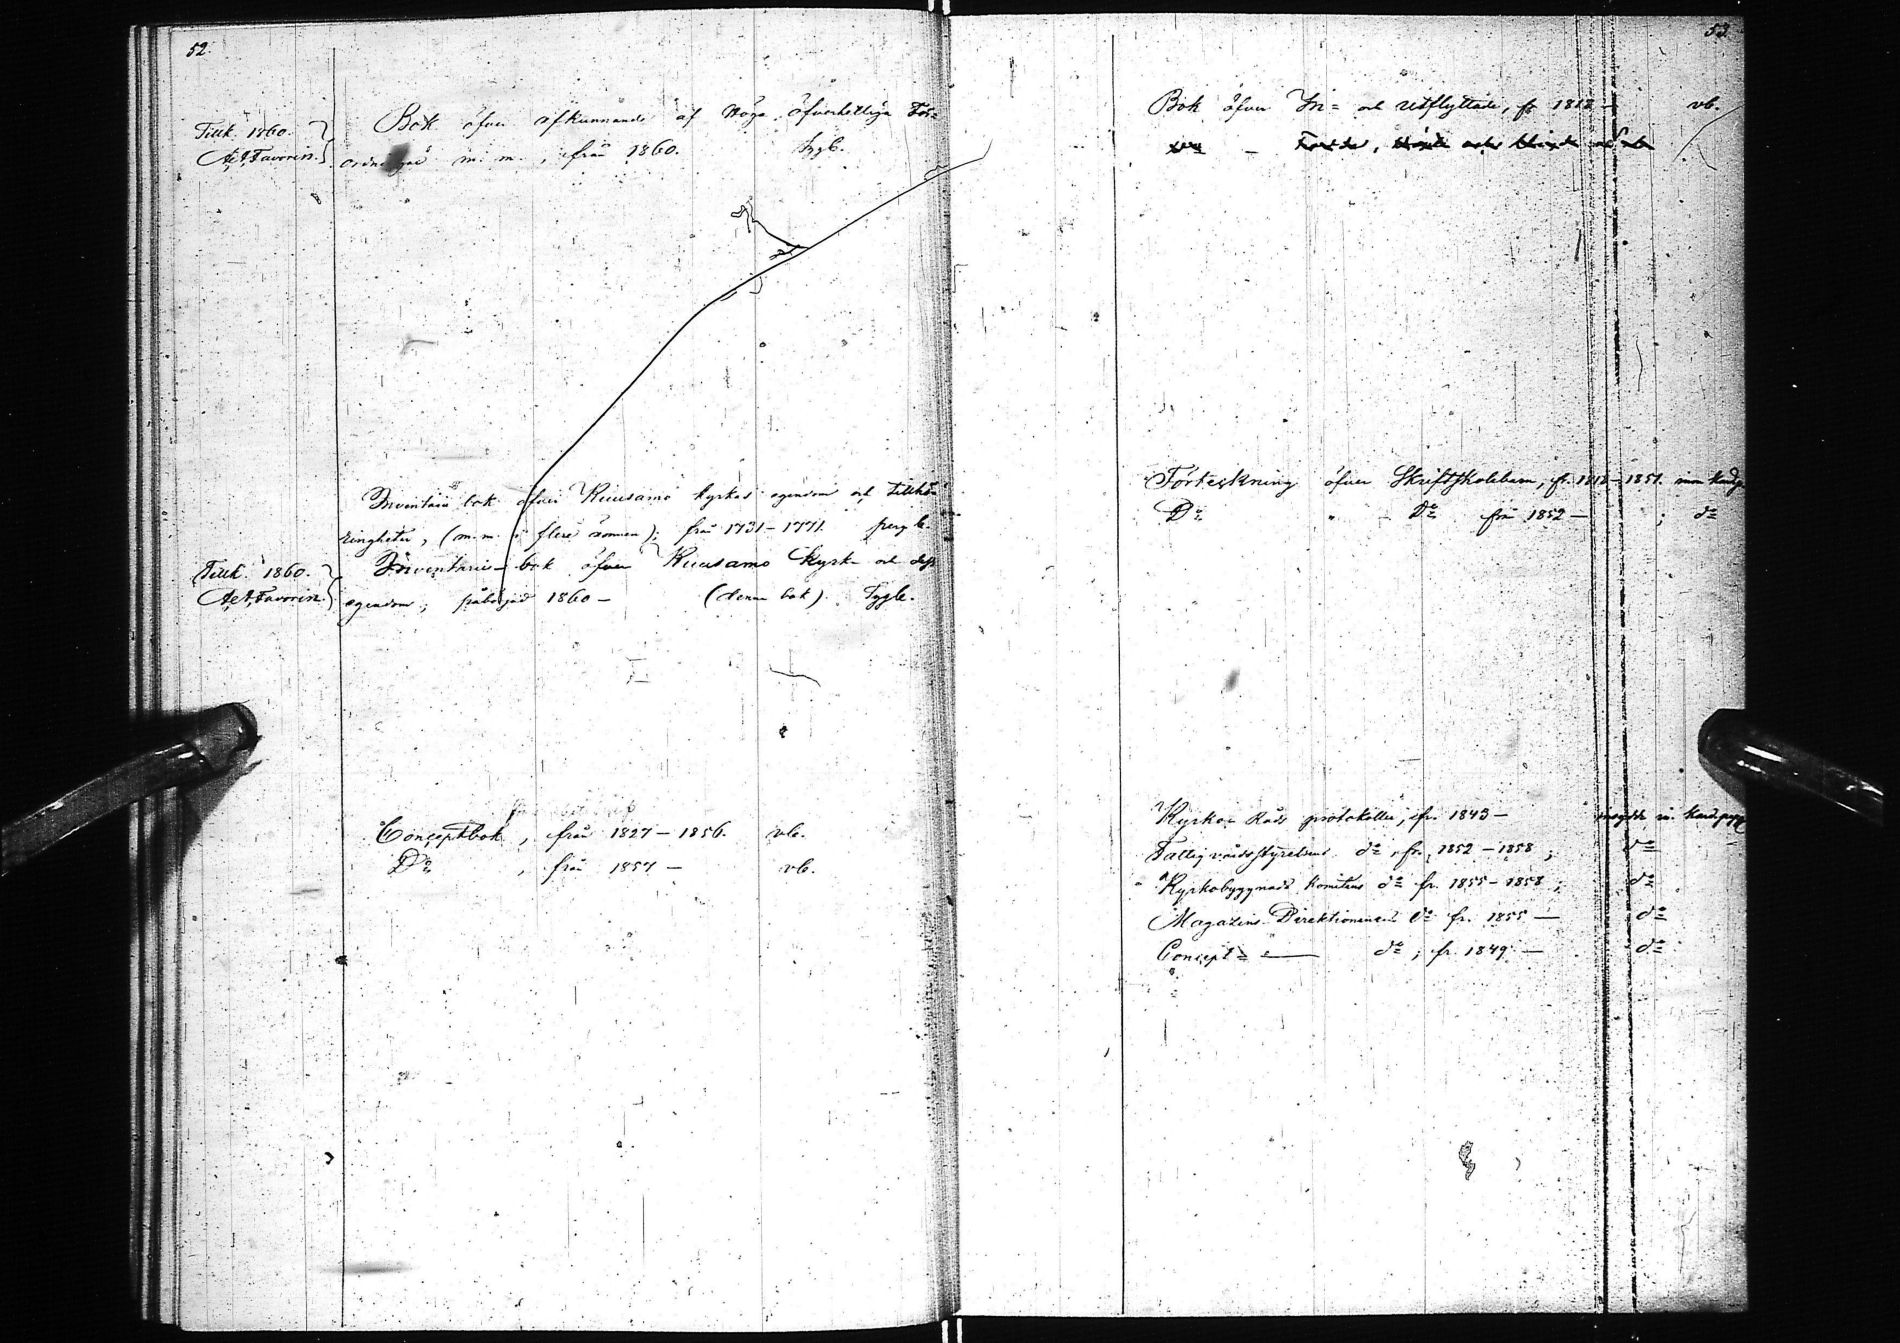 52.
Tillk. 1860.
A. A. Favorin.
Bok öfver afkunnande af Höga öfverhetliga För=
ordningar m. m., från 1860. Tygb.
Inventarii bok öfver Kuusamo kyrkas egendom och tillhö=
ringheter, (m. m. i flere ämnen); från 1731–1771. pergb.
Tillk. 1860.
A. A. Favorin.
Inventarie-bok öfver Kuusamo Kyrk- och dess
egendom; påbörjad 1860– (denna bok). Tygb.
Conceptbok, från 1827–1856. vb.
Do, från 1857– vb.
53.
Bok öfver In= och Utflyttade, fr. 1818– vb.
Förteckning öfver Skriftskolebarn, fr. 1818–1851. inom
Do " Do från 1852– ; do
Kyrko-Råds protokoller, fr. 1843–
Fattigvårdsstyrelsens do, fr. 1852–1858; do
Kyrkobyggnads Komitens do fr. 1855–1858; do
Magazins Direktionens do fr. 1855– do
Concept= do; fr. 1849.– do